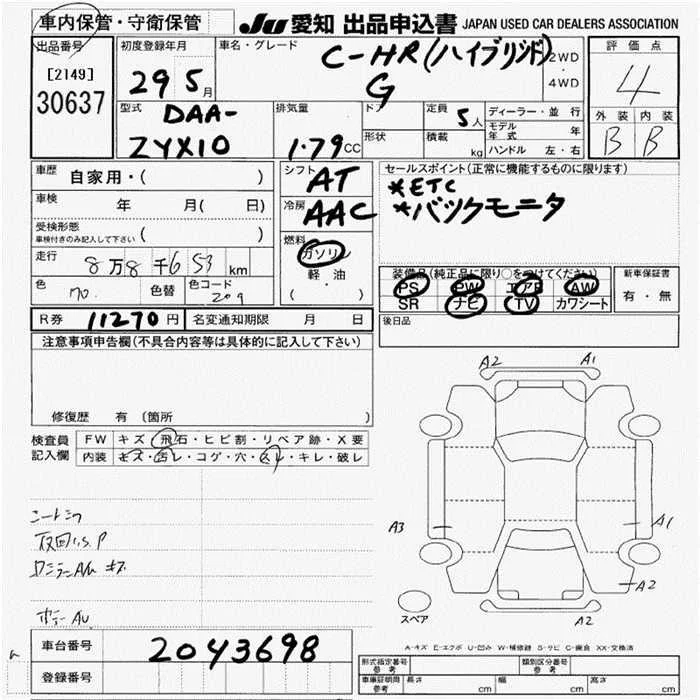 車内保管・守衛保管
JU 愛知 出品申込書 JAPAN USED CAR DEALERS ASSOCIATION
出品番号
[2149]
30637
初度登録年月
29 5月
車名・グレード
C-HR(ハイブリッド)
G
2WD
・
4WD
評価点
4
外装 内装
B B
型式
DAA-
ZYX10
排気量
1.79 CC
ドア
形状
定員
5人
積載
kg
ディーラー・並行
モデル年式 年
ハンドル 左・右
車歴
自家用・( )
車検 年 月( 日)
受検形態
車検付きのみ記入して下さい ( )
走行
8万8千653 km
色 70. 色替 色コード 209
シフト
AT
冷房
AAC
燃料
ガソリン
軽・油
( ・ )
セールスポイント(正常に機能するものに限ります)
*ETC
*バックモニタ
装備品(純正品に限り○をつけてください)
PS PW エアB AW
SR ナビ TV カワシート
新車保証書
有・無
R券 11270円 名変通知期限 月 日
後日品
注意事項申告欄(不具合内容等は具体的に記入して下さい)
修復歴 有 (箇所 )
検査員
記入欄
FW キズ・飛石・ヒビ割・リペア跡・X要
内装 キズ・汚レ・コゲ・穴・スレ・キレ・破レ
A2 A1
A3 A1
A2
A2
スペア
A-キズ E-エクボ U-凹み W-補修跡 S-サビ C-腐食 XX-交換済
車台番号
2043698
登録番号
形式指定番号
参考
類別区分番号
参考
車庫証明用
参考
長さ cm 幅 cm 高さ cm